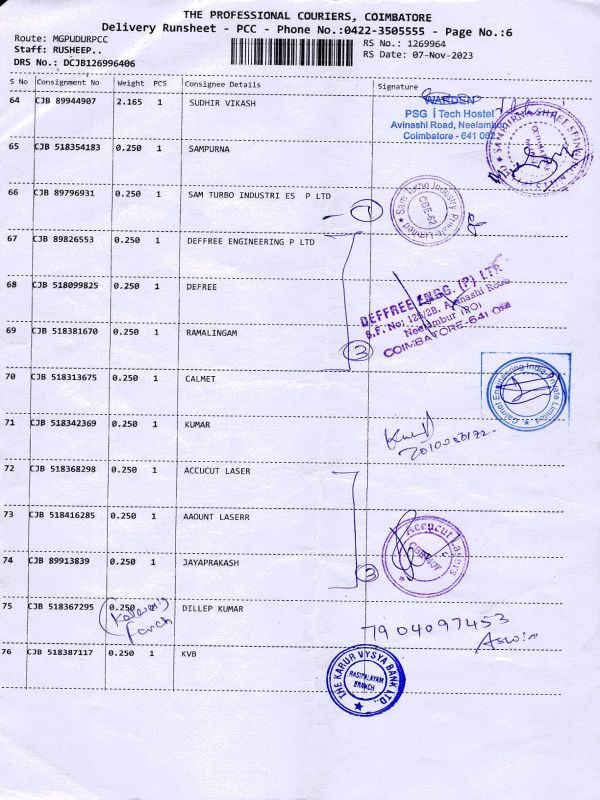 THE PROFESSIONAL COURIERS, COIMBATORE
Delivery Runsheet - PCC - Phone No.:0422-3505555 - Page No.:6
Route: MGPUDURPCC
RS No.: 1269964
Staff: RUSHEEP..
RS Date: 07-Nov-2023
DRS No.: DCJB126996406
S No Consignment No Weight PCS Consignee Details Signature
64 CJB 89944907 2.165 1 SUDHIR VIKASH
WARDEN
PSG i Tech Hostel
Avinashi Road, Neelambur
Coimbatore - 641 062
65 CJB 518354183 0.250 1 SAMPURNA
66 CJB 89796931 0.250 1 SAM TURBO INDUSTRI ES P LTD
1
Sam Turbo Industry Private Limited
CBE-62
67 CJB 89826553 0.250 1 DEFFREE ENGINEERING P LTD
68 CJB 518099825 0.250 1 DEFREE
DEFFREE ENGG. (P) LTD
S.F. No: 128/2B, Avinashi Road
Neelambur (PO)
COIMBATORE-641 062
69 CJB 518381670 0.250 1 RAMALINGAM
3
70 CJB 518313675 0.250 1 CALMET
Calmet Engineering India Private Limited
71 CJB 518342369 0.250 1 KUMAR
72 CJB 518368298 0.250 1 ACCUCUT LASER
73 CJB 518416285 0.250 1 AAOUNT LASERR
Accucut Lasers
74 CJB 89913839 0.250 1 JAYAPRAKASH
3
75 CJB 518367295 0.250 DILLEP KUMAR
7904097453
Aswin
76 CJB 518387117 0.250 1 KVB
THE KARUR VYSYA BANK LTD.,
RASIPALAYAM
BRANCH